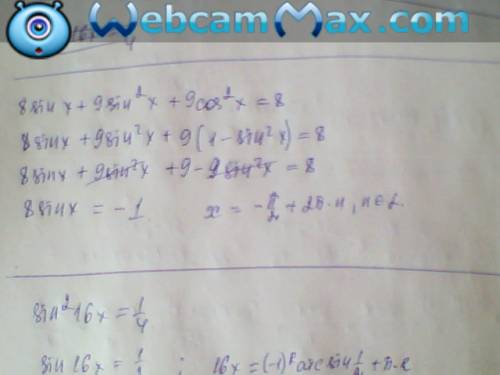 WebcamMax.com
8 sin x + 9 sin²x + 9 cos²x = 8
8 sin x + 9 sin²x + 9(1 − sin²x) = 8
8 sin x + 9 sin²x + 9 − 9 sin²x = 8
8 sin x = −1 x = −π/2 + 2π·n, n∈Z.
sin²16x = 1/4
sin 16x = ; 16x = (−1) arcsin 1/2 + π·k